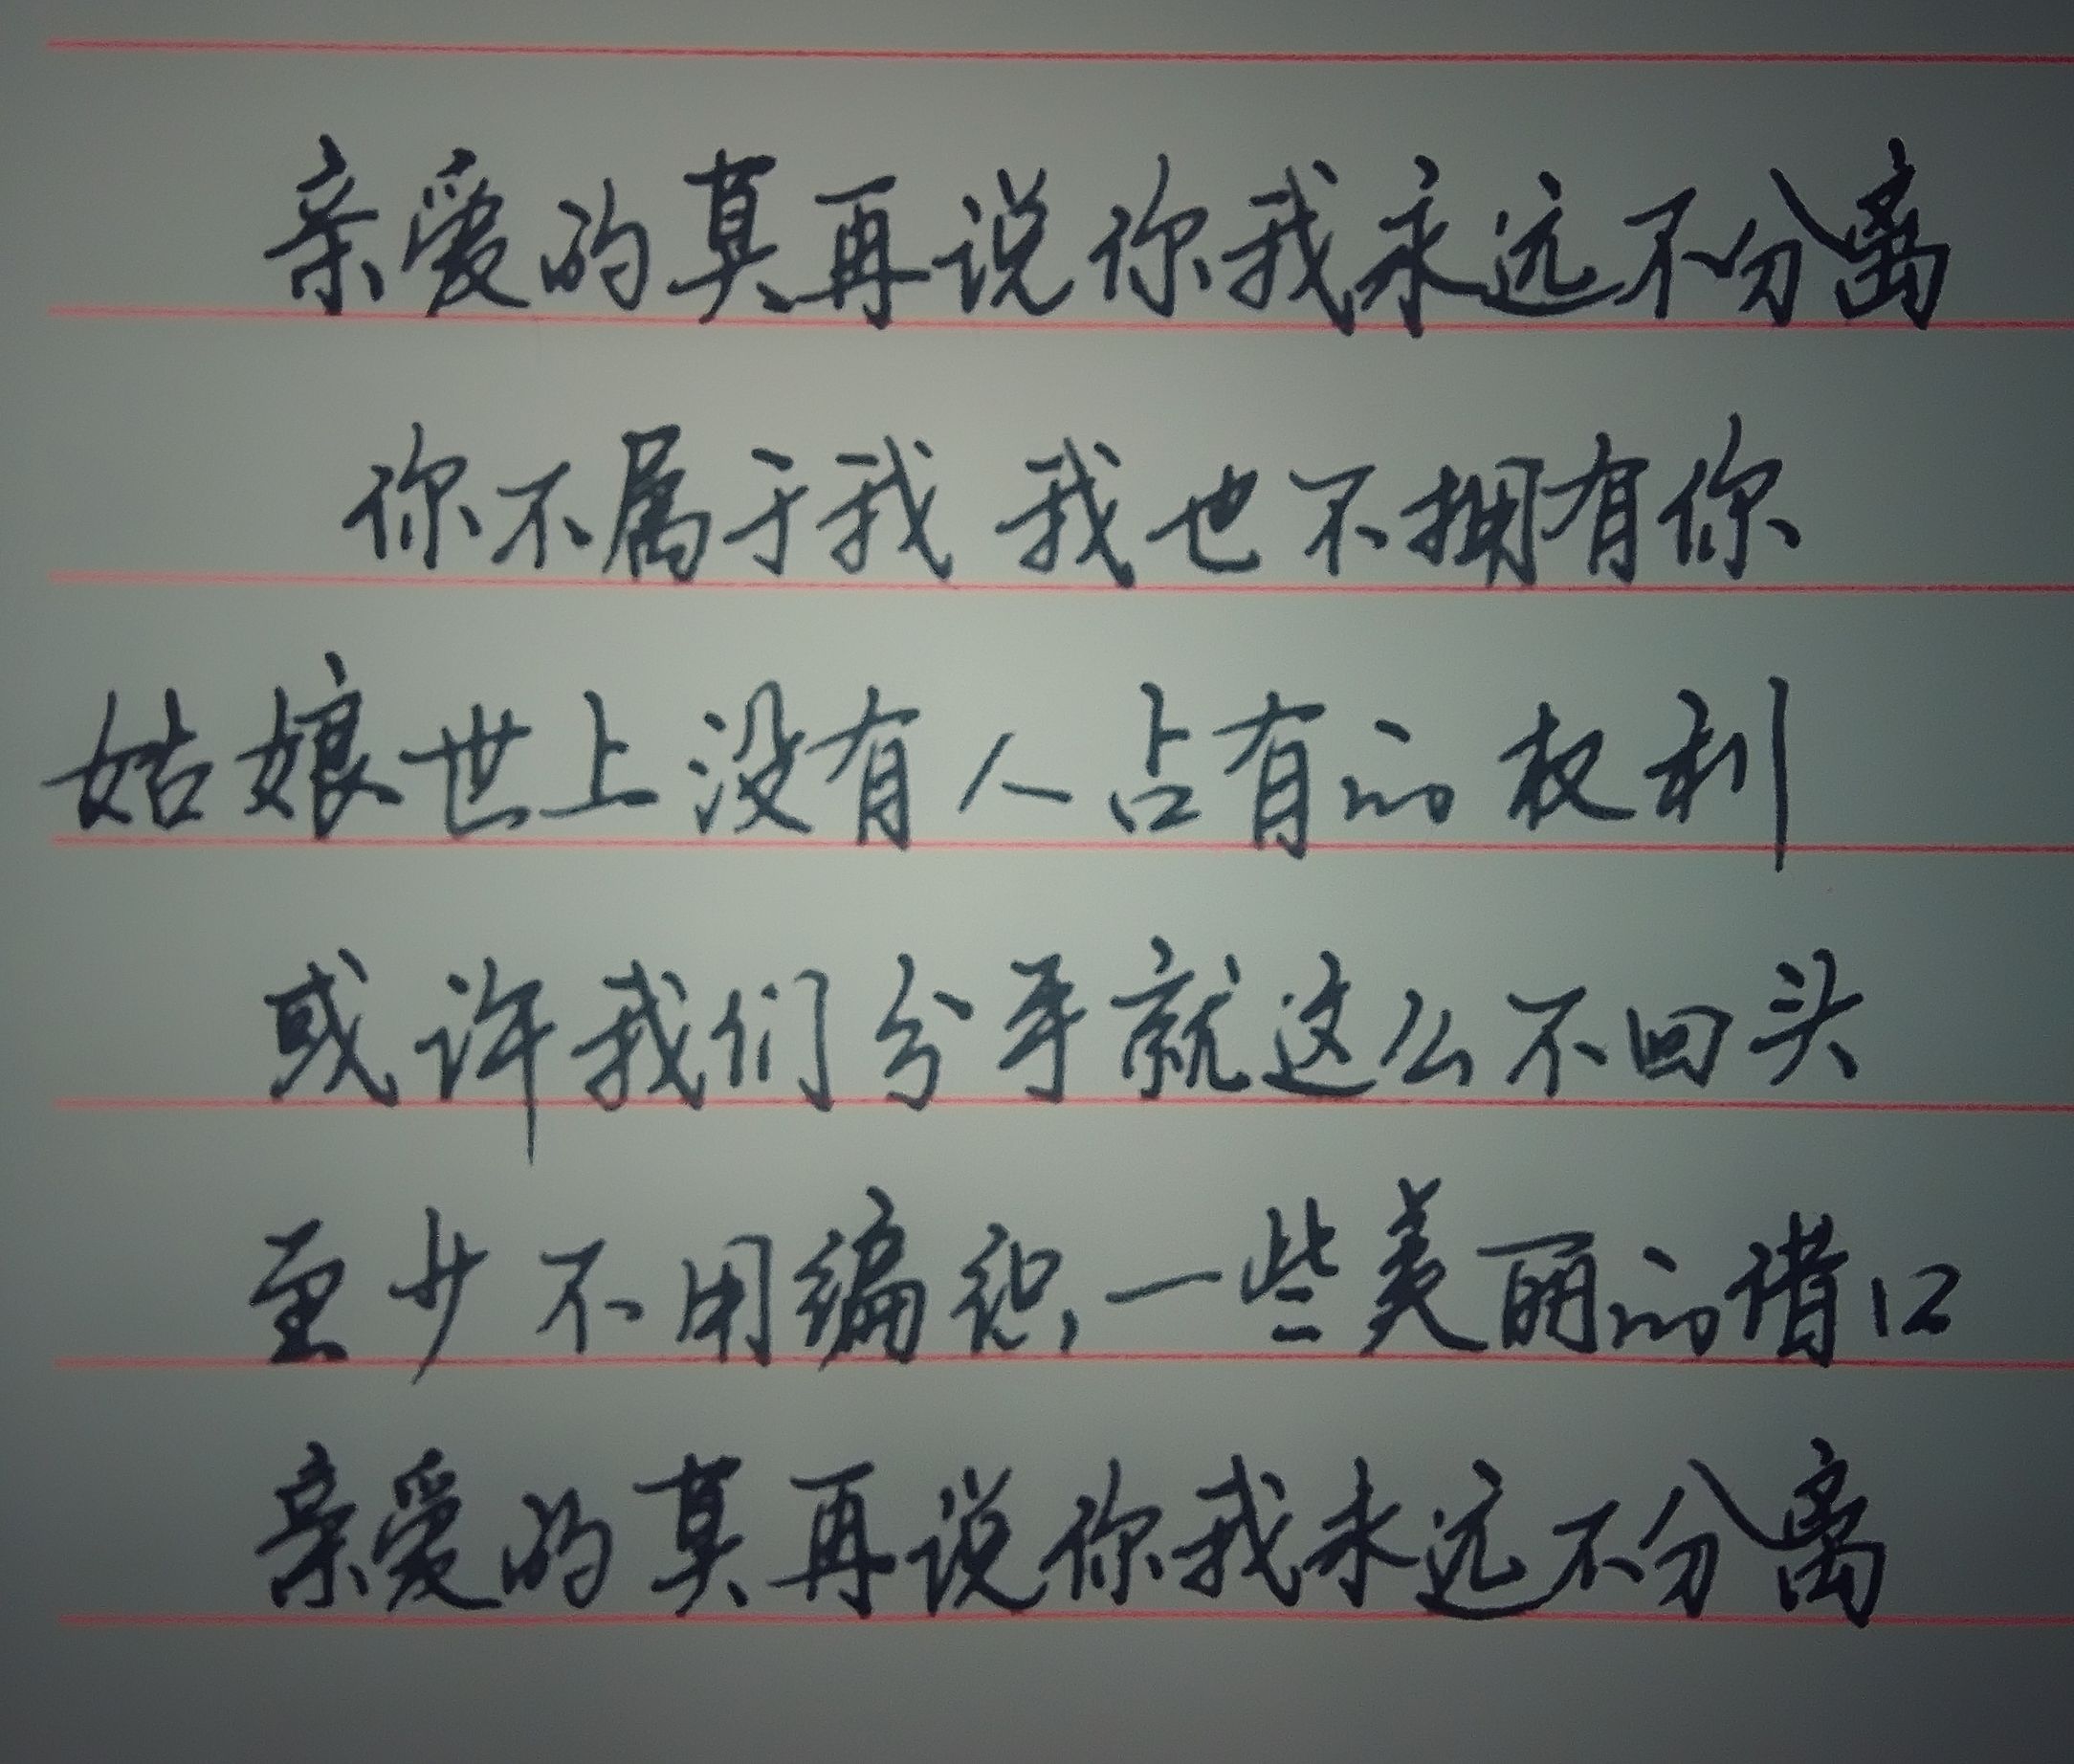 亲爱的莫再说你我永远不分离
你不属于我 我也不拥有你
姑娘世上没有人占有的权利
或许我们分手就这么不回头
至少不用编织一些美丽的借口
亲爱的莫再说你我永远不分离